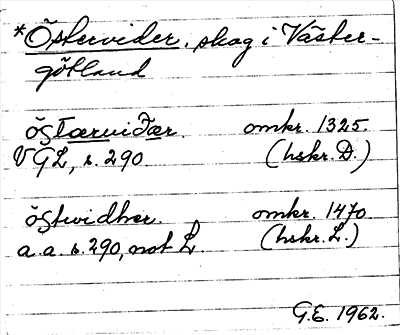 *Östervider, skog i Väster-
götland
östærviðær. omkr. 1325.
VGL, s. 290 (hskr. D.)
östwidher. omkr. 1470
a.a. s. 290, not L. (hskr. L.)
G.E. 1962.